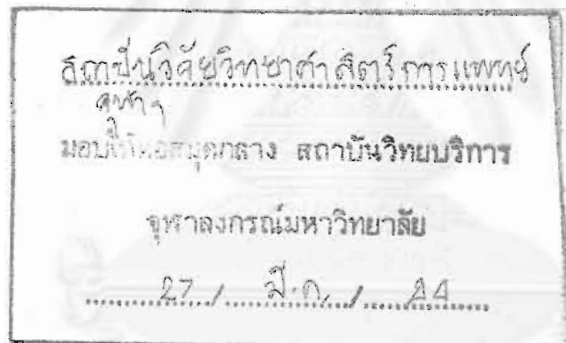 สถาบันวิจัยวิทยาศาสตร์การแพทย์
จุฬาฯ
มอบให้หอสมุดกลาง สถาบันวิทยบริการ
จุฬาลงกรณ์มหาวิทยาลัย
27 / มี.ค. / 44